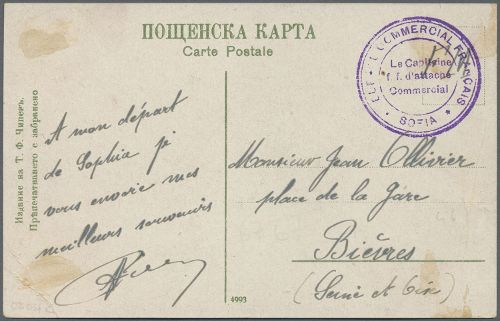 ПОЩЕНСКА КАРТА
Carte Postale
COMMERCIAL FRANÇAIS
Le Capitaine
f. f. d'attaché
Commercial
SOFIA
A mon départ
de Sophia je
vous envoie mes
meilleurs souvenirs
Monsieur Jean Ollivier
place de la Gare
Bièvres
(Seine et Oise)
Издание на Т. Ф. Чипевъ.
Препечатването е забранено
4993